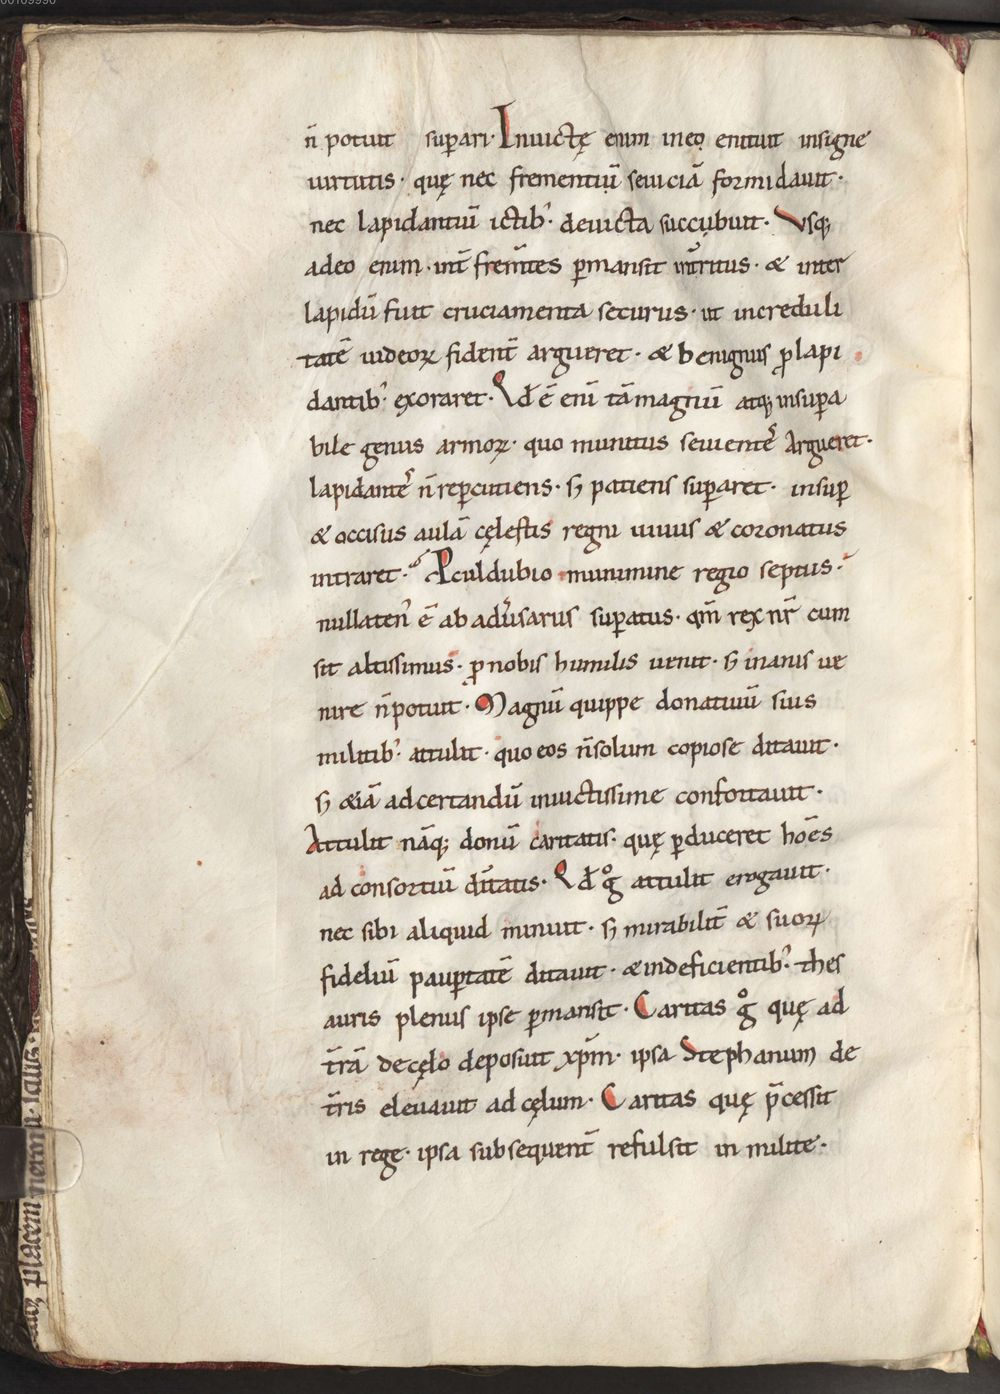 00109990
n̄ potuit suꝑari· Inuictę enim in eo enituit insigne
uirtutis· quę nec frementiū seuiciā formidauit·
nec lapidantiū ictib᾿· deuicta succubuit· Vsq;
adeo enim· int̄ frem̄tes ꝑmansit int̄ritus· & inter
lapidū fuit cruciamenta securus· ut increduli
tatē iudeoꝝ fident̄ argueret· & benignus ꝓ lapi
dantib᾿ exoraret· Qd̄ ē eni tā magnū atq; insuꝑa
bile genus armoꝝ· quo munitus seuientē᾿ Argueret·
lapidantē᾿ n̄ reꝑcutiens· ꝫ patiens suꝑaret· insuꝑ
& occisus aulā cęlestis regni uiuus & coronatus
intraret· Pculdubio munimine regio septus·
nullaten᾿ ē ab adu᾿sariis suꝑatus· qm̄ rex nr̄ cum
sit altissimus· ꝓ nobis humilis uenit· ꝫ inanis ue
nire n̄ potuit· Magnū quippe donatiuū suis
militib᾿ attulit· quo eos n̄ solum copiose ditauit·
ꝫ &iā ad certandū inuictissime confortauit·
Attulit nāq; donū caritatis· quę ꝑduceret hoēs
ad consortiū diu̅tatis· Qd̄ gͦ attulit erogauit·
nec sibi aliquid minuit· ꝫ mirabilit̄ & suoꝝ
fideliū pauꝑtatē ditauit· & indeficientib᾿· thes
auris plenus ipse ꝑmansit· Caritas gͦ quę ad
t̄rā de cęlo deposuit xp̄m· ipsa Stephanum de
t̄ris eleuauit ad cęlum· Caritas quę p̄cessit
in rege· ipsa subsequent̄ refulsit in milite·